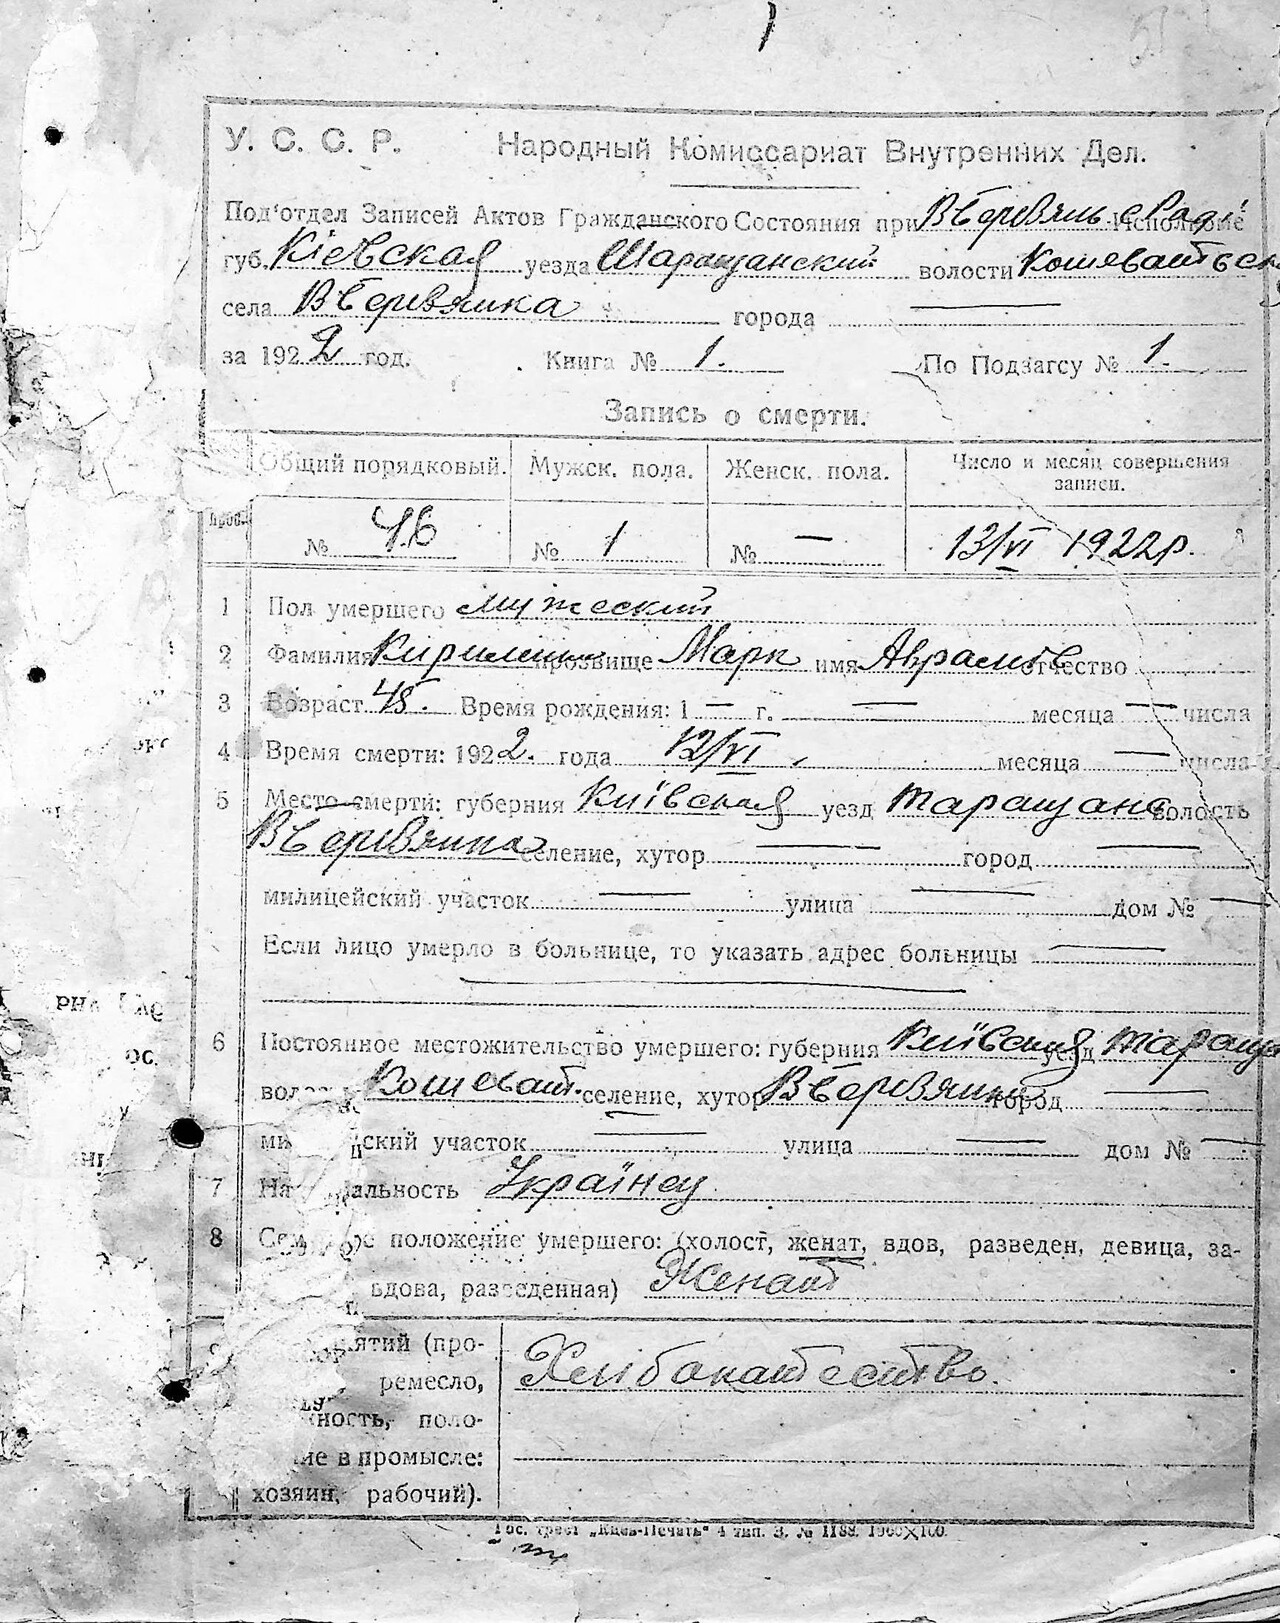 У. С. С. Р. Народный Комиссариат Внутренних Дел.
Под'отдел Записей Актов Гражданского Состояния при Исполкоме
губ. Кіевская уезда Таращанский волости Кошеватск
села
города
за 1922 год. Книга № 1. По Подзагсу № 1.
Запись о смерти.
Общий порядковый. Мужск. пола. Женск. пола. Число и месяц совершения записи.
№ 46 № 1 № — 13/VI 1922р.
1 Пол умершего мужеский
2 Фамилия прозвище Марк имя отчество
3 Возраст 45. Время рождения: 1 — г. — месяца — числа
4 Время смерти: 1922. года 12/VI. месяца — числа
5 Место смерти: губерния Київская уезд Таращанс волость
селение, хутор — город —
милицейский участок — улица — дом № —
Если лицо умерло в больнице, то указать адрес больницы —
6 Постоянное местожительство умершего: губерния Київская уезд Таращ
Кошеват. селение, хутор город —
ский участок — улица — дом № —
7 На альность Українец
8 положение умершего: (холост, женат, вдов, разведен, девица, за-
вдова, разведенная) Женат
ятий (про-
ремесло, Хлибопашество.
ность, поло-
ие в промысле:
хозяин, рабочий).
Гос. трест „Киев-Печать“ 4 тип. З. № 1188. 1000×100.